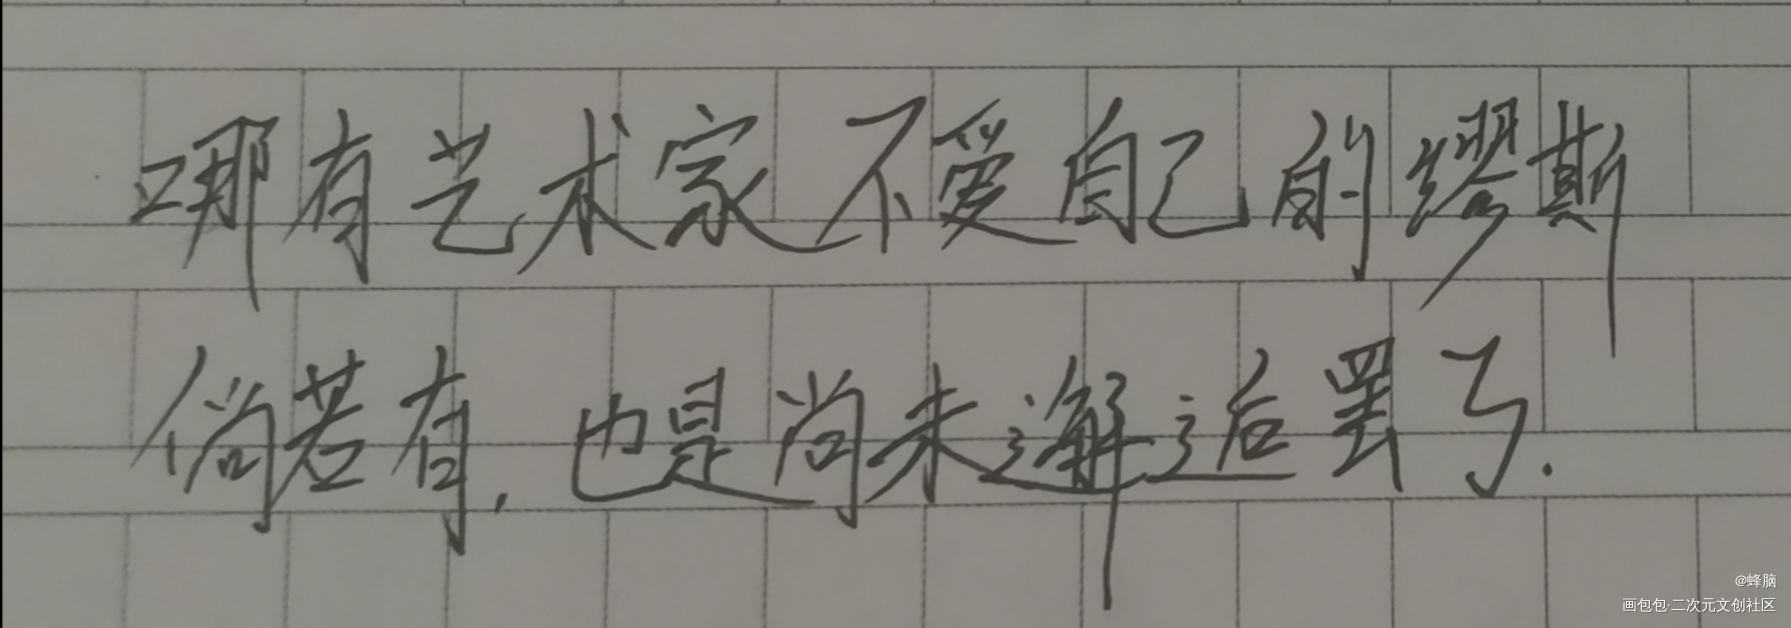 哪有艺术家不爱自己的缪斯
倘若有,也是尚未邂逅罢了.
@蜂脑
画包包·二次元文创社区